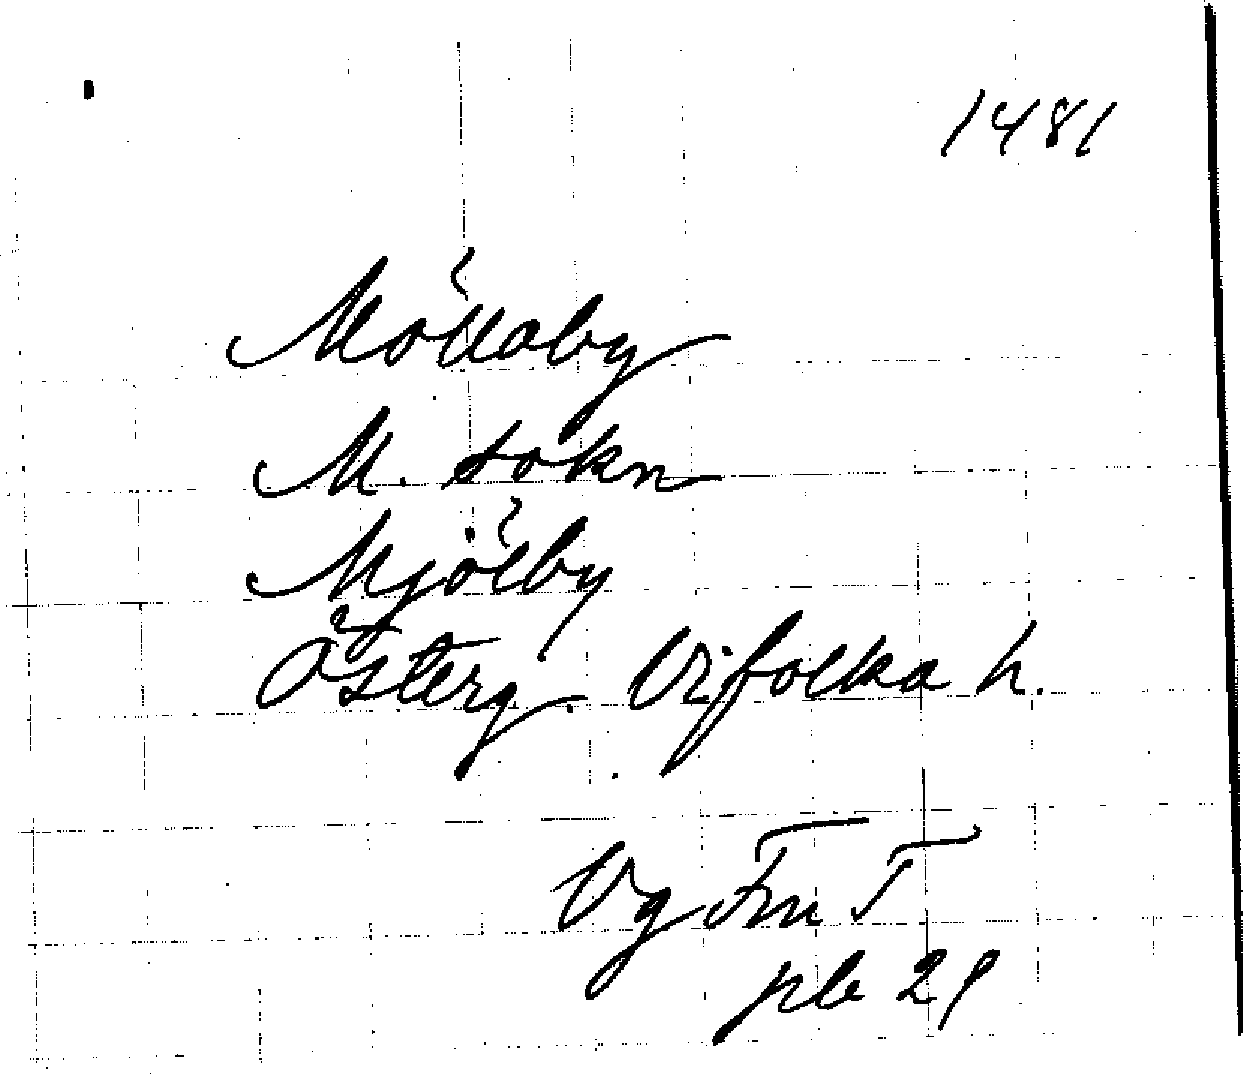 1481
Möllaby
M. sokn
Mjölby
Österg. Vifolka h.
Vg Fm T
plb 21